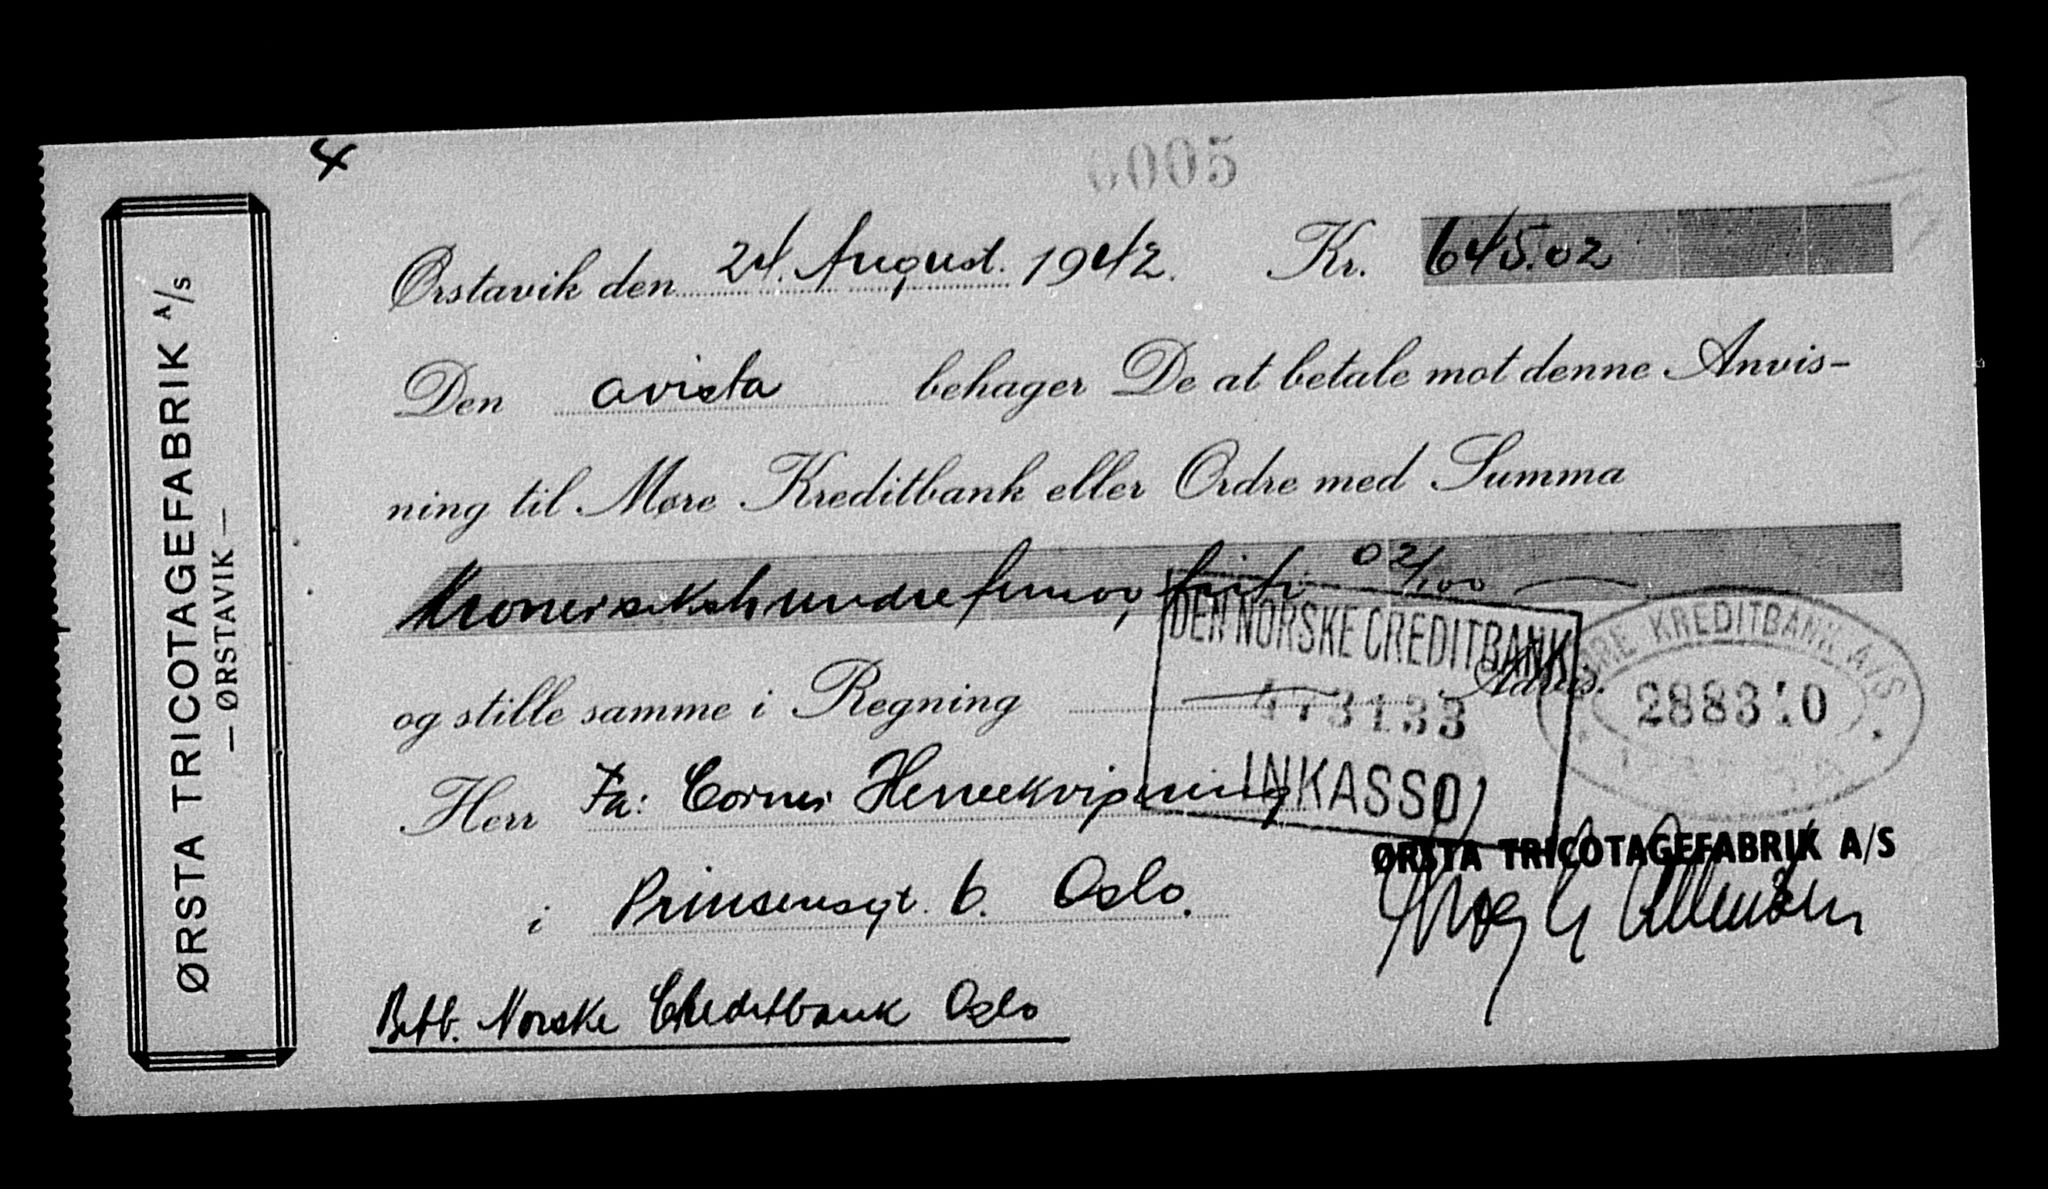 4
ØRSTA TRICOTAGEFABRIK A/S
— ØRSTAVIK —
0005
Ørstavik den 24. August. 1942. Kr. 645.02
Den avista behager De at betale mot denne Anvis-
ning til Møre Kreditbank eller Ordre med Summa
Kroner sekshundrefemog firti 02/100
DEN NORSKE CREDITBANK
473133
INKASSO
MØRE KREDITBANK A/S
og stille samme i Regning Advis.
Herr Fa: Corner Herreekvipering
i Prinsensgt. 6. Oslo.
ØRSTA TRICOTAGEFABRIK A/S
Betb. Norske Creditbank Oslo